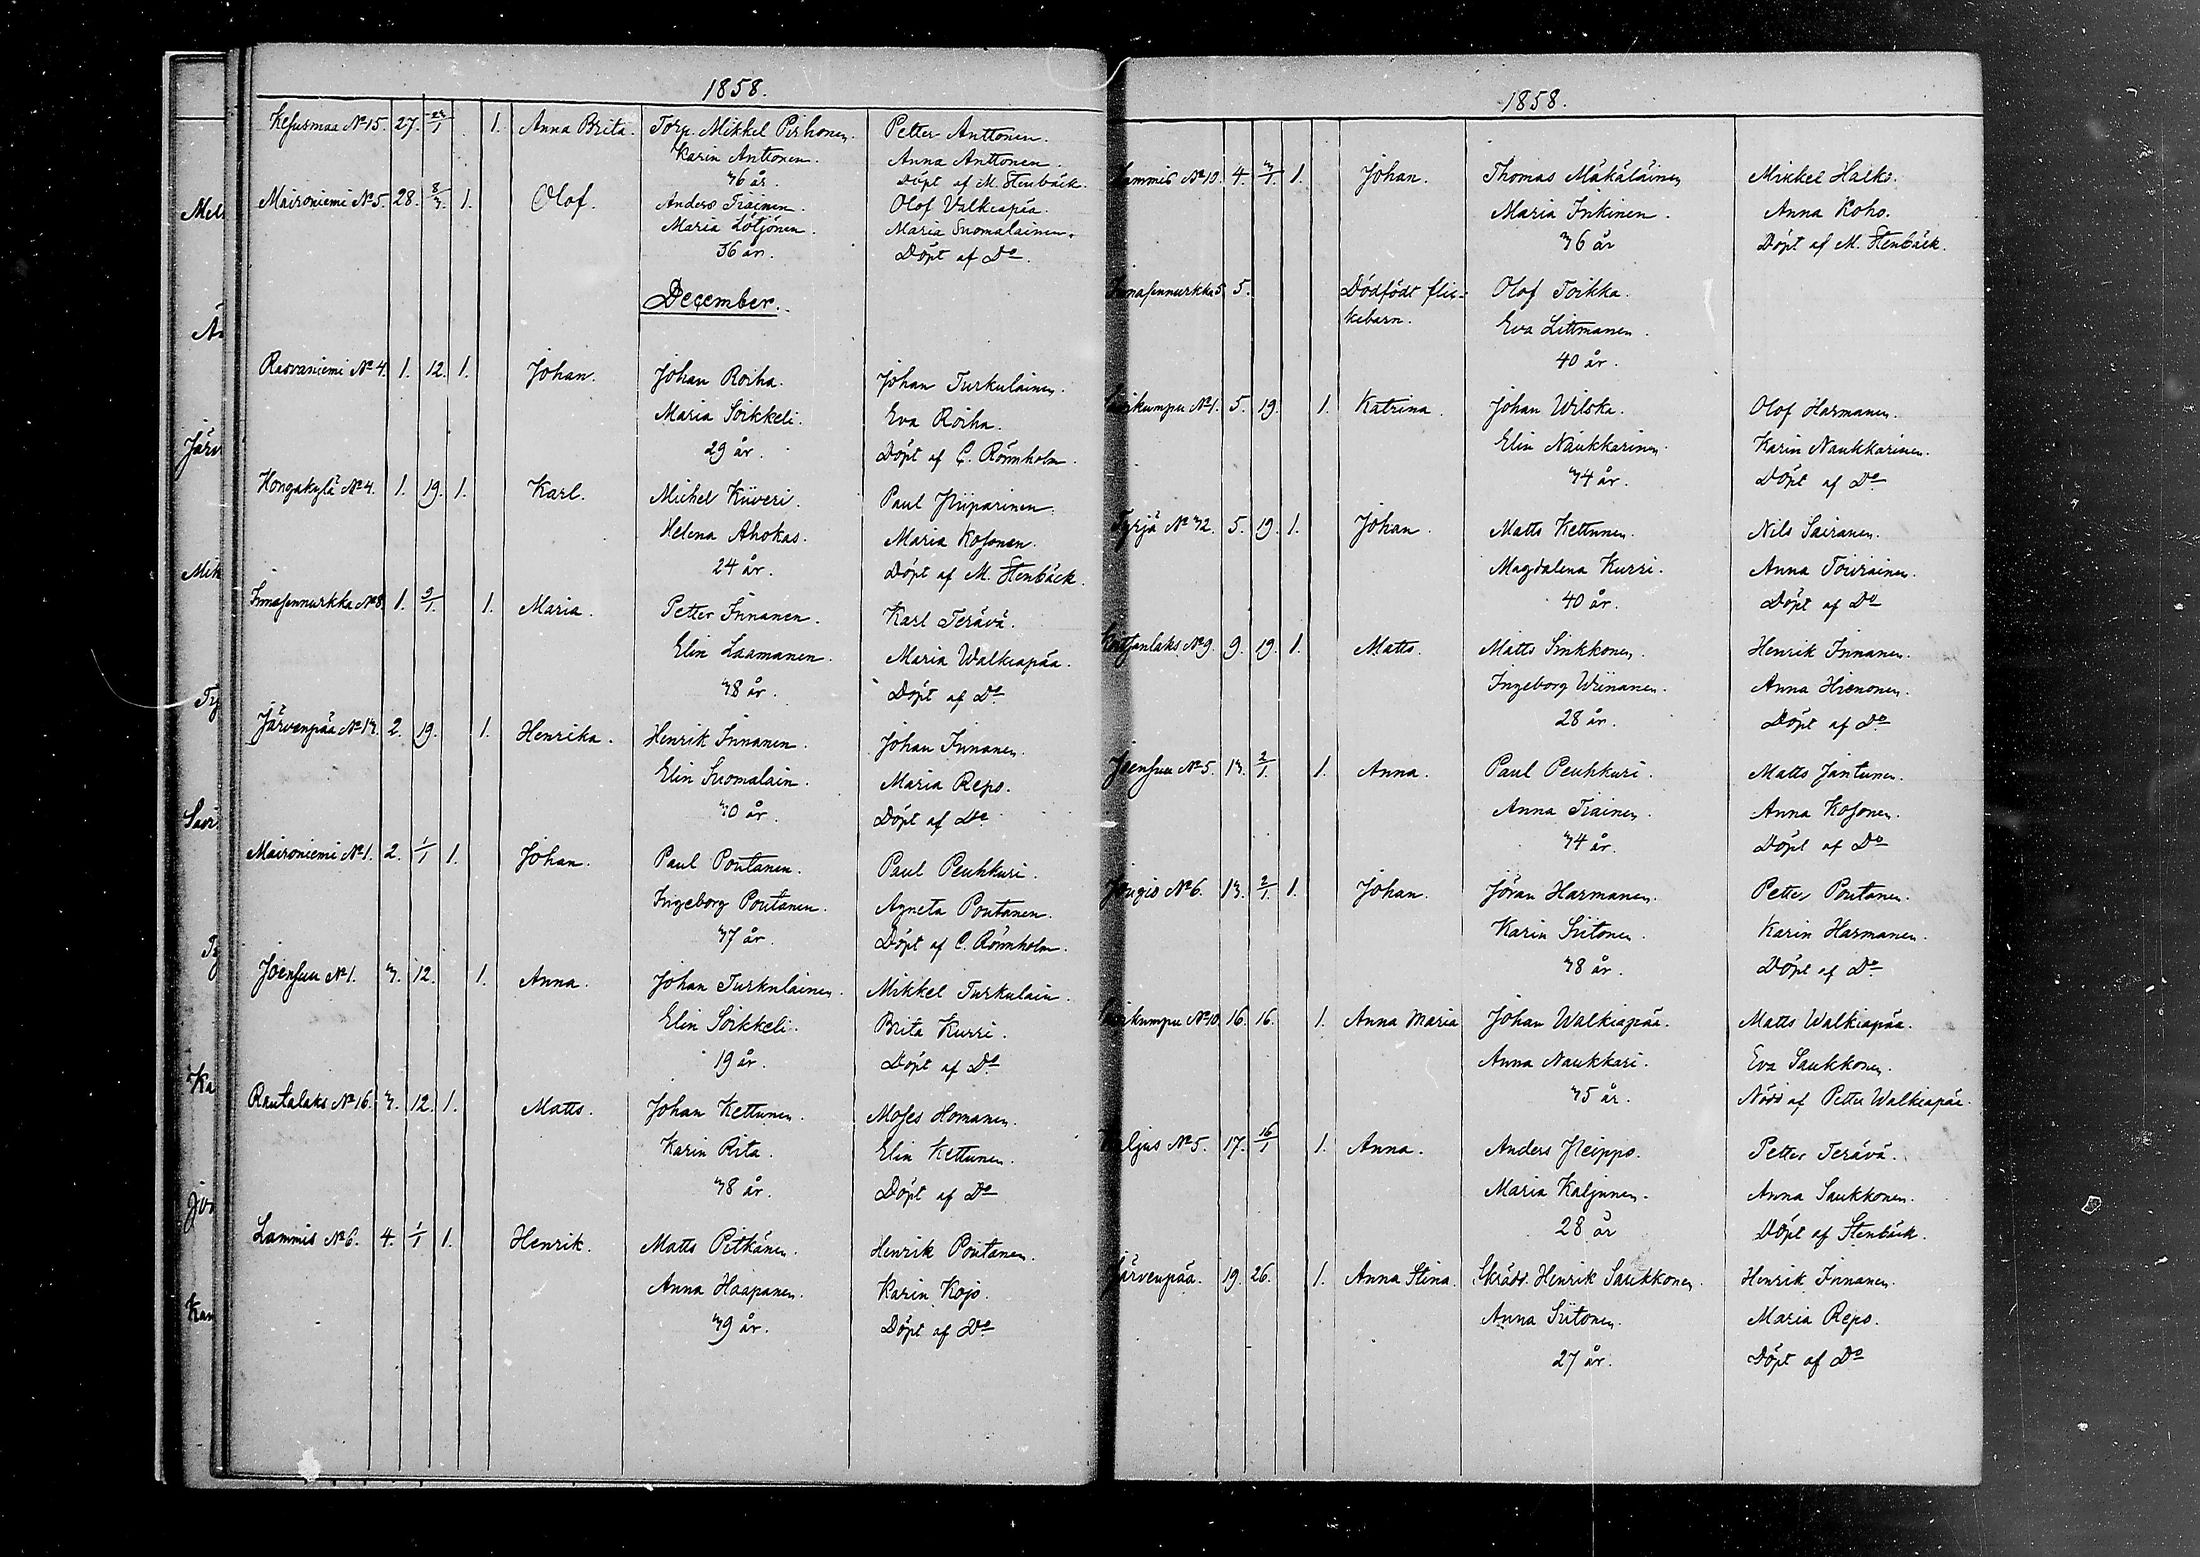 1858.
Kesusmaa No 15. 27. 1. Anna Brita. Torp. Mikkel Pirhonen. Petter Anttonen.
Karin Anttonen. Anna Anttonen.
36 år. Döpt af M. Stenbäck.
Maironiemi No 5. 28. 8/3. 1. Olof. Anders Tiainen. Olof Valkeapää.
Maria Lötjönen. Maria Suomalainen.
36 år. Döpt af Do.
December.
Rasvaniemi No 4. 1. 12. 1. Johan. Johan Roiha. Johan Turkulainen.
Maria Soikkeli. Eva Roiha.
29 år. Döpt af C. Rönnholm.
Hongakylä No 4. 1. 19. 1. Karl. Michel Kiiveri. Paul Hiiparinen.
Helena Ahokas. Maria Kosonen.
24 år. Döpt af M. Stenbäck.
Innasennurkka No 8. 1. 2/1. 1. Maria. Petter Innanen. Karl Terävä.
Elin Laamanen. Maria Walkiapää.
38 år. Döpt af Do
Järvenpää No 13. 2. 19. 1. Henrika. Henrik Innanen. Johan Innanen.
Elin Suomalain. Maria Repo.
30 år. Döpt af Do.
Maironiemi No 1. 2. 1/1 1. Johan. Paul Poutanen. Paul Peuhkuri.
Ingeborg Poutanen. Agneta Poutanen.
37 år. Döpt af C. Rönnholm.
Joensuu No 1. 3. 12. 1. Anna. Johan Turkulainen. Mikkel Turkulain.
Elin Soikkeli. Brita Kurri.
19 år. Döpt af Do.
Rautalaks No 16. 3. 12. 1. Matts. Johan Kettunen. Moses Homanen.
Karin Rita. Elin Kettunen.
38 år. Döpt af Do
Lammis No 6. 4. 1/1 1. Henrik. Matts Pitkänen. Henrik Poutanen.
Anna Haapanen. Karin Kojo.
39 år. Döpt af Do
1858.
Lammis No 10. 4. 3/1. 1. Johan. Thomas Mäkäläinen Mikkel Halko.
Maria Inkinen. Anna Koho.
36 år Döpt af M. Stenbäck.
Innasennurkka 5. 5. Dödfödt flic- Olof Toikka.
kebarn. Eva Littmanen.
40 år.
Saarikumpu No 1. 5. 19. 1. Katrina. Johan Wilska. Olof Harmanen.
Elin Naukkarinen. Karin Naukkarinen.
34 år. Döpt af Do
Tyrjä No 32. 5. 19. 1. Johan. Matts Kettunen. Nils Sairanen.
Magdalena Kurri. Anna Toiviainen.
40 år. Döpt af Do
No 9. 9. 19. 1. Matts. Matts Sinkkonen. Henrik Innanen.
Ingeborg Wiinanen. Anna Hirvonen.
28 år. Döpt af Do
Joensuu No 5. 13. 2/1. 1. Anna. Paul Peuhkuri. Matts Jantunen.
Anna Tiainen. Anna Kosonen.
34 år. Döpt af Do
Jougio No 6. 13. 2/1. 1. Johan. Jöran Harmanen. Petter Poutanen.
Karin Siitonen. Karin Harmanen.
38 år. Döpt af Do.
Saarikumpu No 10. 16. 16. 1. Anna Maria Johan Walkiapää. Matts Walkiapää.
Anna Naukkari. Eva Saukkonen.
35 år. Nödd af Petter Walkiapää.
Kaljus No 5. 17. 16/1 1. Anna. Anders Heippo. Petter Terävä.
Maria Kaljunen. Anna Saukkonen.
28 år Döpt af Stenbäck.
Järvenpää. 19. 26. 1. Anna Stina. Skrädd. Henrik Saukkonen. Henrik Innanen.
Anna Siitonen. Maria Repo.
27 år. Döpt af Do